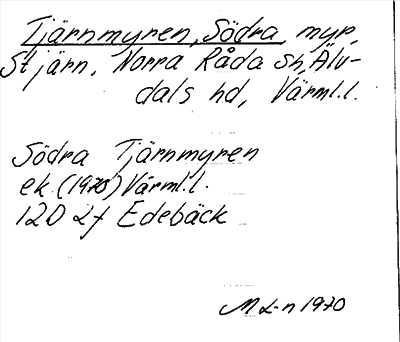 Tjärnmyren, Södra myr,
Stjärn. Norra Råda sn, Älv-
dals hd, Värml.l.
Södra Tjärnmyren
ek. (1970) Värml.l.
12D 2f Edebäck
M L-n 1970